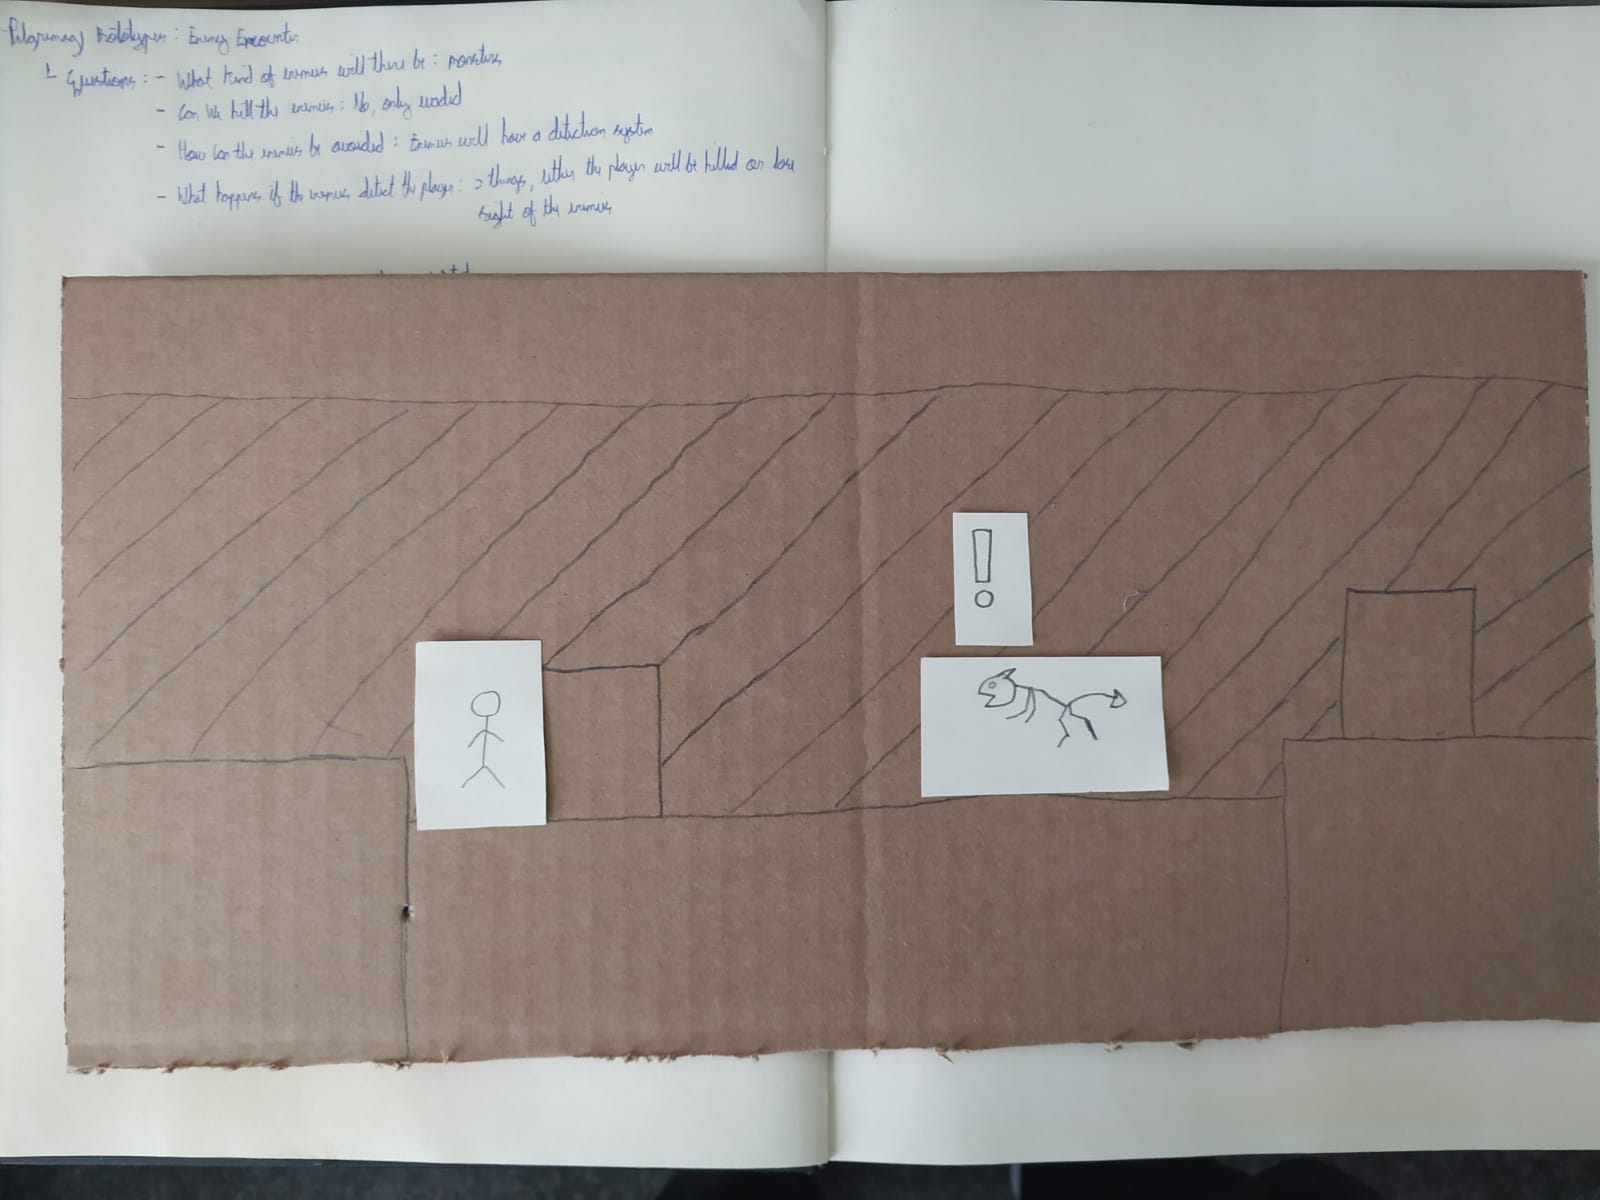 Pilgrimary Prototypes: Enemy Encounter
Questions: - What kind of enemies will there be: monsters
- Can we kill the enemies: No, only evaded
- How can the enemies be avoided: Enemies will have a detection system
- What happens if the enemies detect the player: 2 things, either the player will be killed or lose
sight of the enemies
!